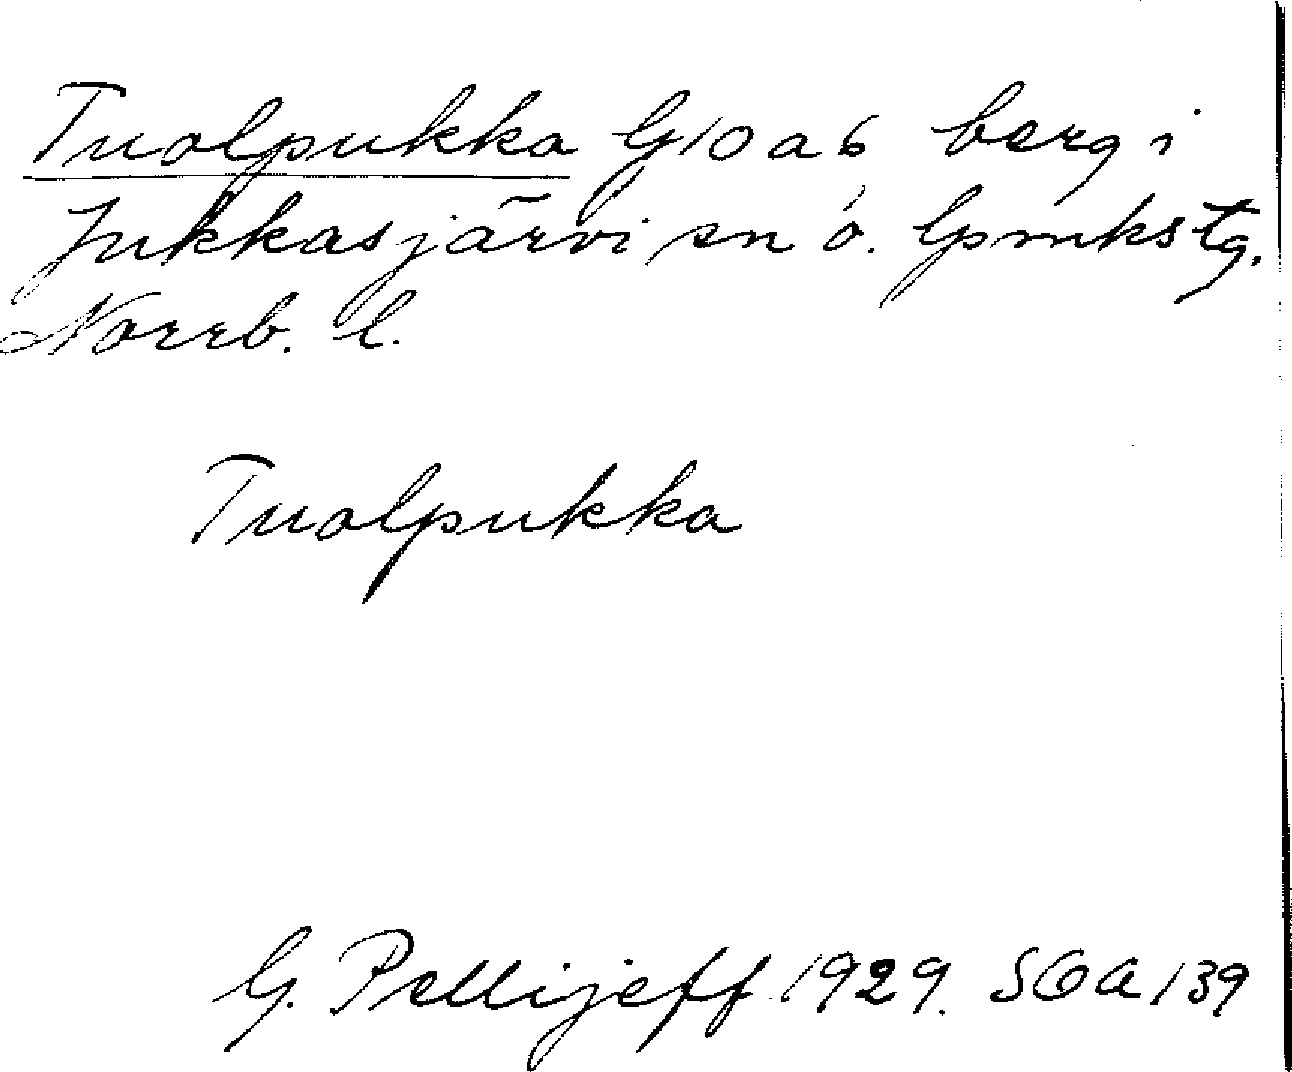 Tuolpukka G10 a 6 berg i
Jukkasjärvi sn o. lpmkstg.
Norrb. l.
Tuolpukka
G. Pellijeff 1929. SOA 139